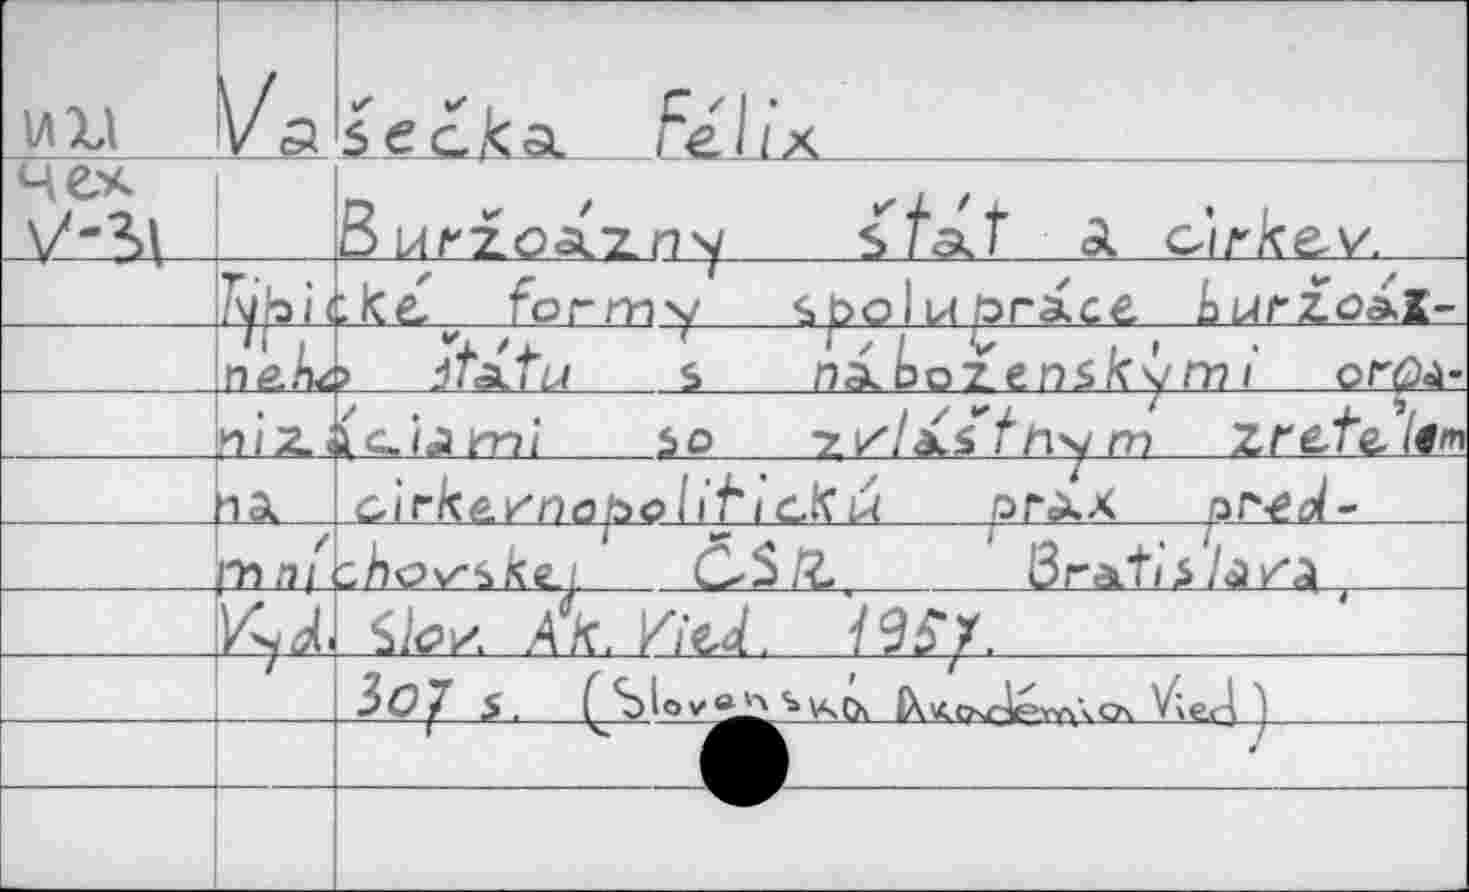 ИИ Vašečka Félix
Чех
V-31 Buržoázny štát a cirkev.
Typické formy spolupráce buržoáz-
neho štátu s náboženskými orga-
nizáciami so zvláštnym zreteľom
na cirkevnopolitickú prax pred-
mníchovskej ČSR. Bratislava,
Vyd. Slov. Ak. Vied. 1957.
307 s. (Slovenská Akadémia Vied)